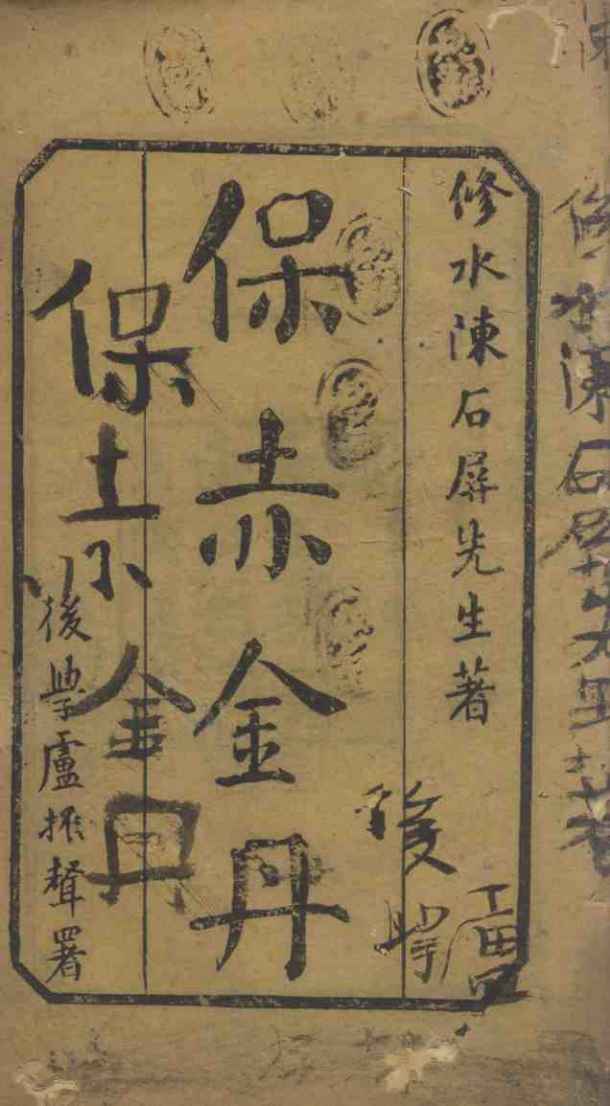 修水陳石屏先生著
保赤金丹
後學盧振聲署
保赤金丹
後學
修水陳石屏先生著